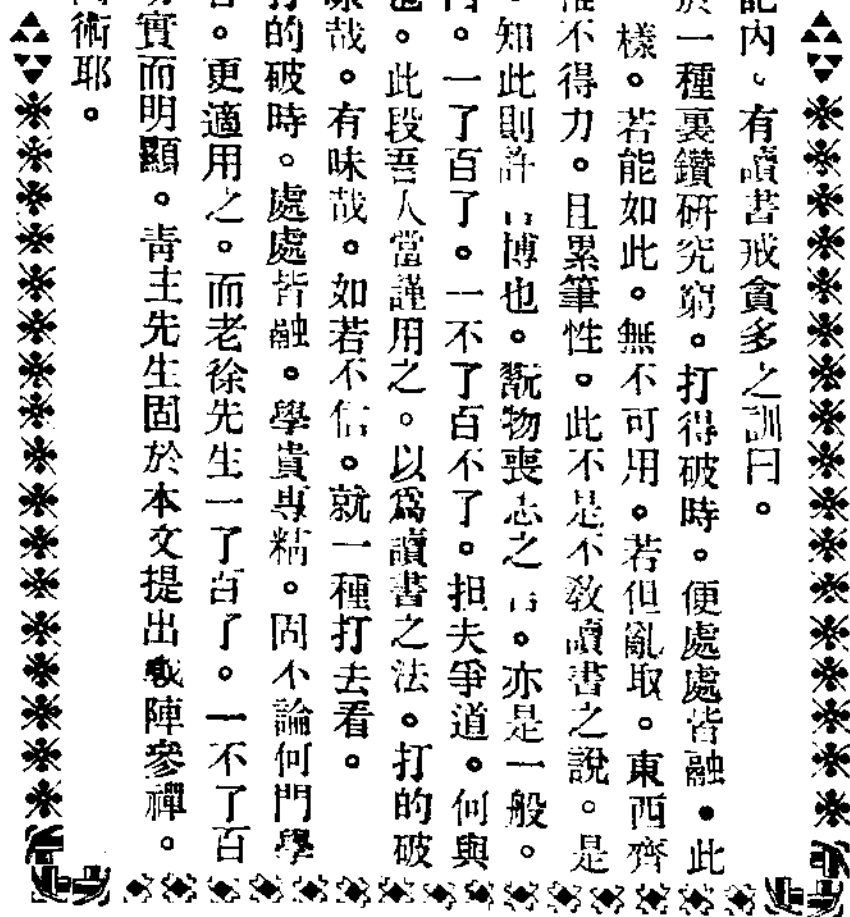 記內。有讀書戒貪多之訓曰。
於一種裏鑽研究窮。打得破時。便處處皆融。此
樣。若能如此。無不可用。若但亂取。東西齊
不得力。且累筆性。此不是不敎讀書之說。是
。知此則許博也。翫物喪志之言。亦是一般。
。一了百了。一不了百不了。担夫爭道。何與
也。此段吾人當謹用之。以爲讀書之法。打的破
哉。有味哉。如若不信。就一種打去看。
打的破時。處處皆融。學貴專精。固不論何門學
。更適用之。而老徐先生一了百了。一不了百
實而明顯。靑主先生固於本文提出戰陣參禪。
術耶。